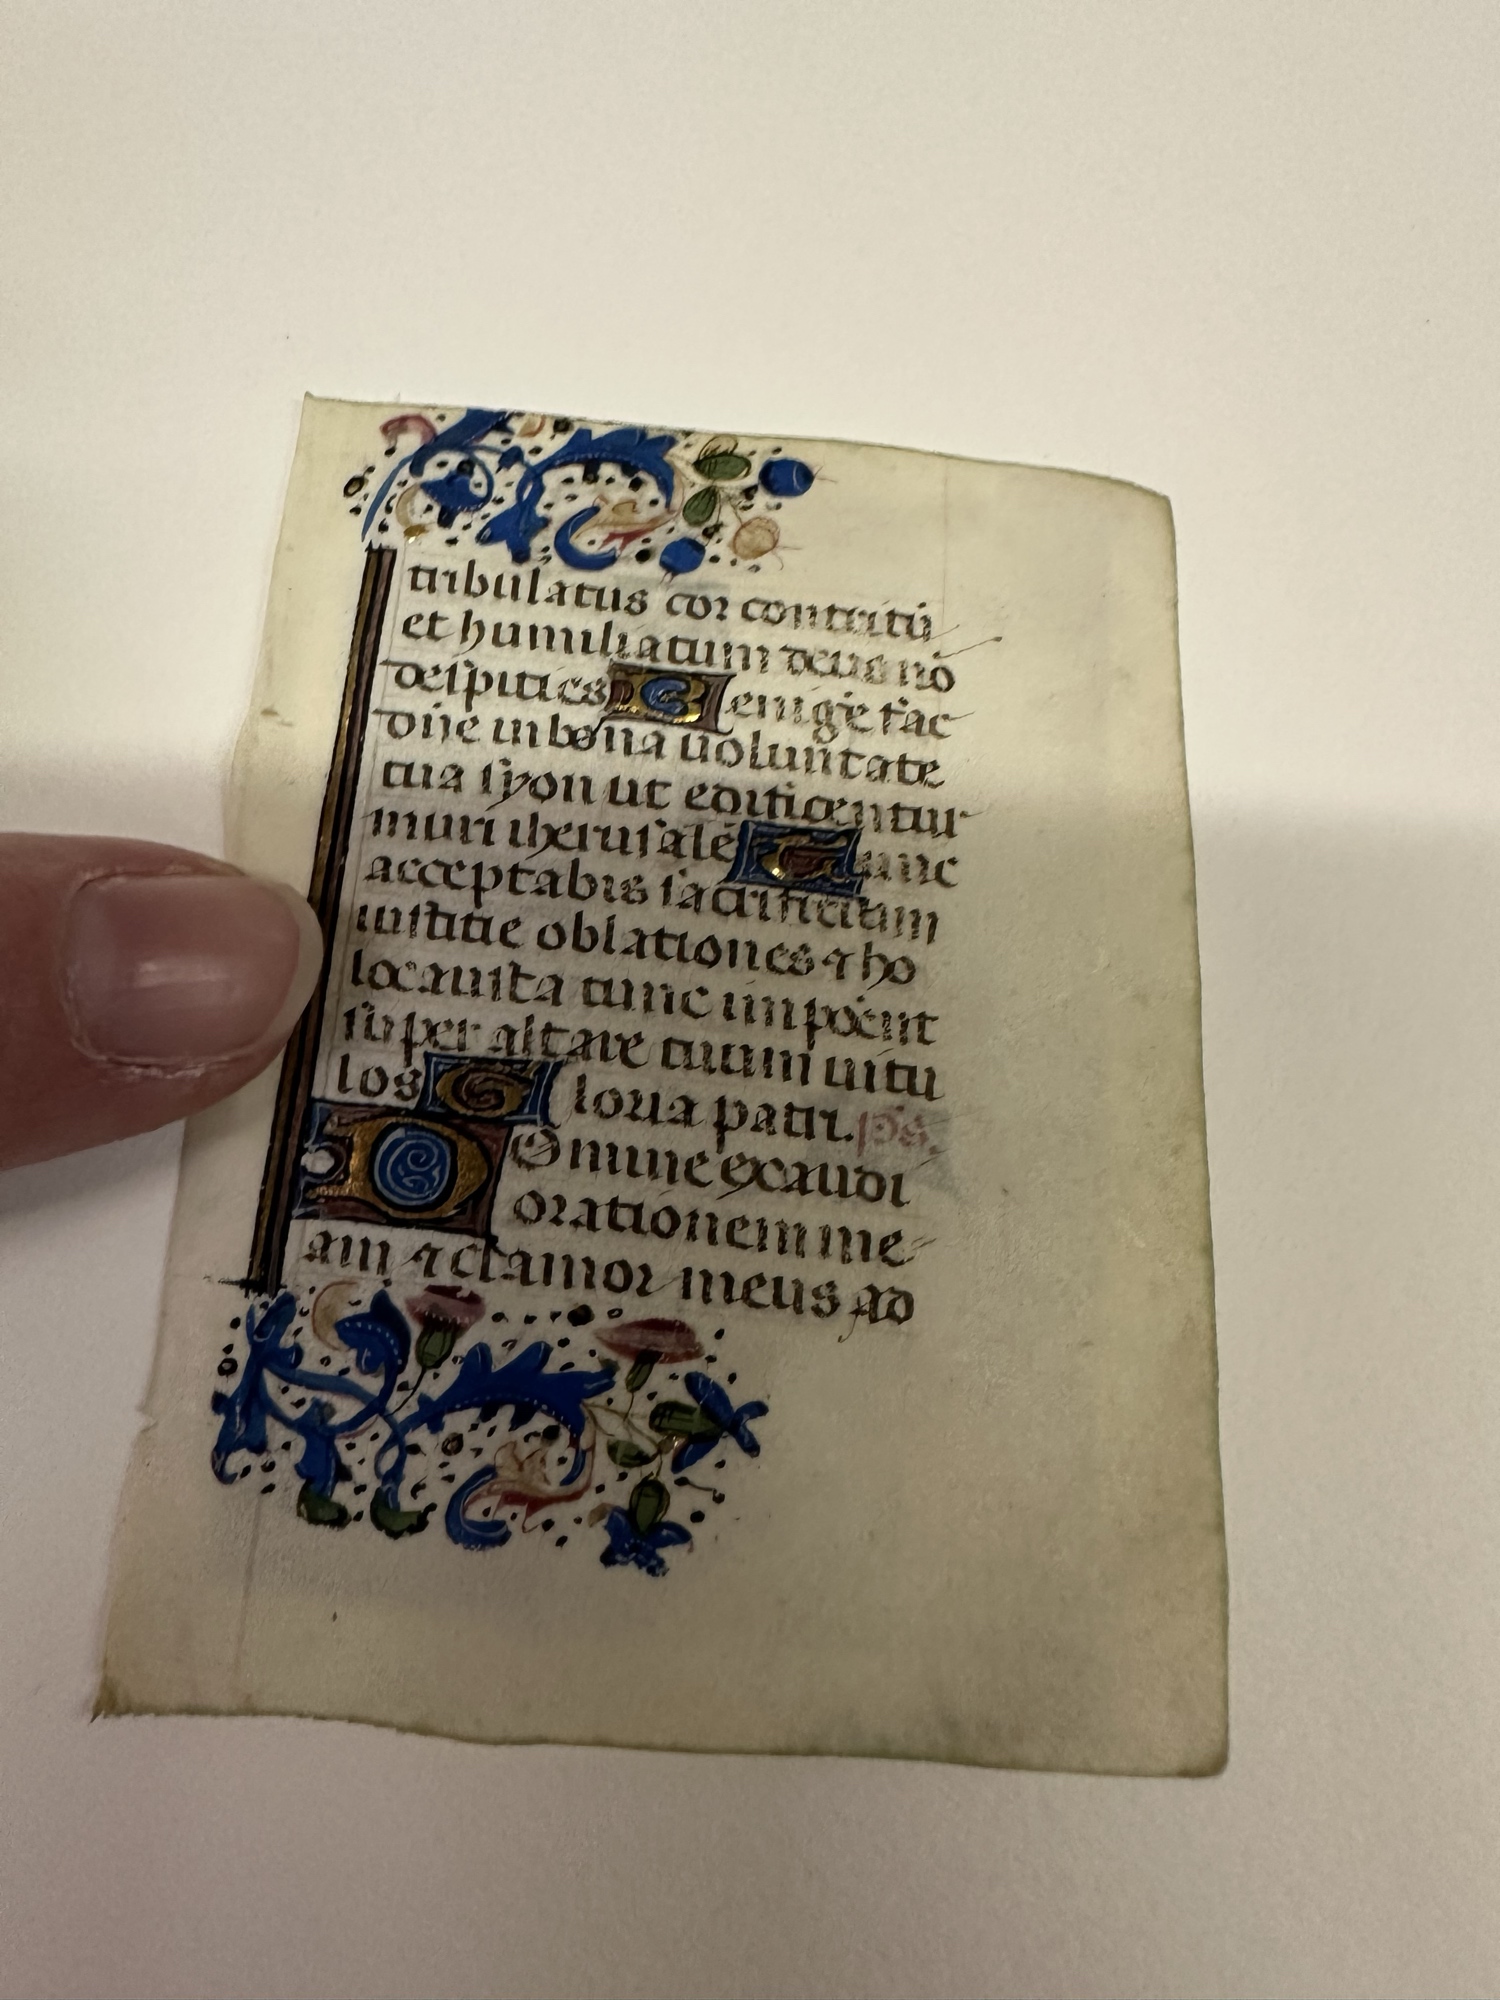 tribulatus cor contritũ
et humiliatum deus nõ
despicies Benigñe fac
dñe in bona uoluntate
tua syon ut edificentur
muri iherusalẽ Tunc
acceptabis sacrificium
iustitie oblationes ⁊ ho
locausta tunc impõent
super altare tuum uitu
los Gloria patri. ps.
Domine exaudi
orationem me
am ⁊ clamor meus ad